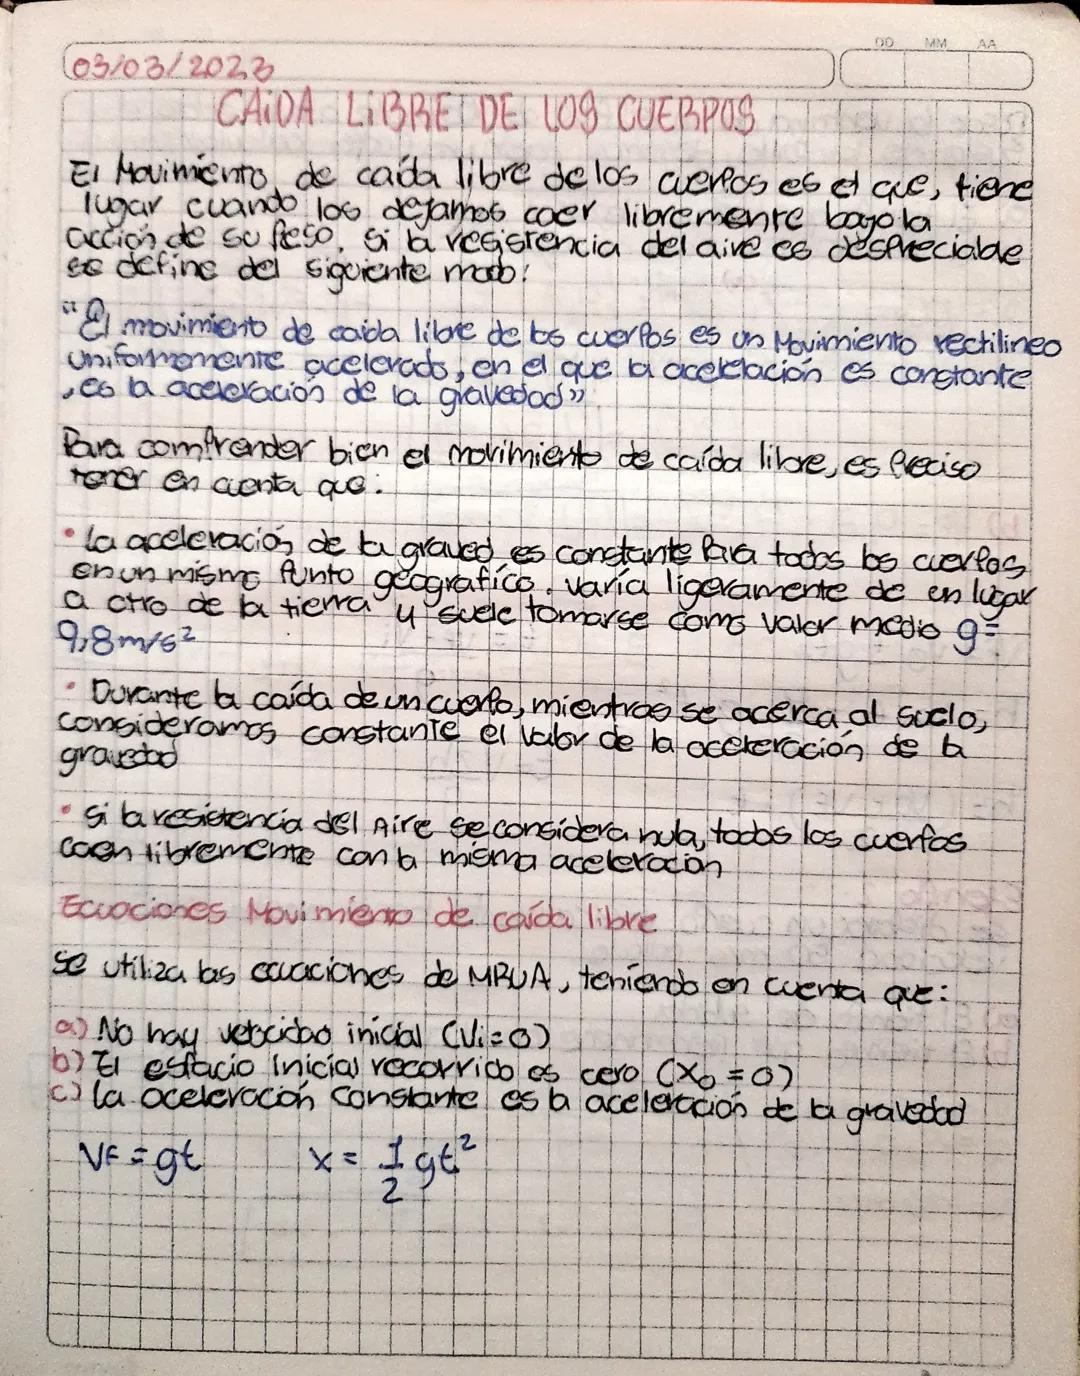 DD MM AA
03/03/2023
CAÍDA LIBRE DE LOS CUERPOS
El Movimiento de caída libre de los cuerpos es el que, tiene
lugar cuando los dejamos caer libremente bajo la
acción de su peso. si la resistencia del aire es despreciable
se define del siguiente modo:
"El movimiento de caida libre de los cuerpos es un Movimiento rectilineo
uniformemente acelerado, en el que la aceleración es constante
, es la aceleración de la gravedad"
Para comprender bien el movimiento de caída libre, es preciso
tener en cuenta que:
• La aceleración de la graved es constante Para todos los cuerpos
en un mismo Punto geografico. varía ligeramente de un lugar
a otro de la tierra y suele tomarse como valor medio g=
9,8m/s²
• Durante la caída de un cuerpo, mientras se acerca al suelo,
consideramos constante el valor de la aceleración de la
gravedad
• si la resistencia del Aire se considera nula, todos los cuerpos
caen libremente con la misma aceleración
Ecuaciones Movimiento de caída libre
se utiliza las ecuaciones de MRUA, teniendo en cuenta que:
a) No hay velocidad inicial (Vi=0)
b) El espacio Inicial recorrido es cero (X₀=0)
c) La aceleración constante es la aceleración de la gravedad
VF = gt x = 1/2 gt²